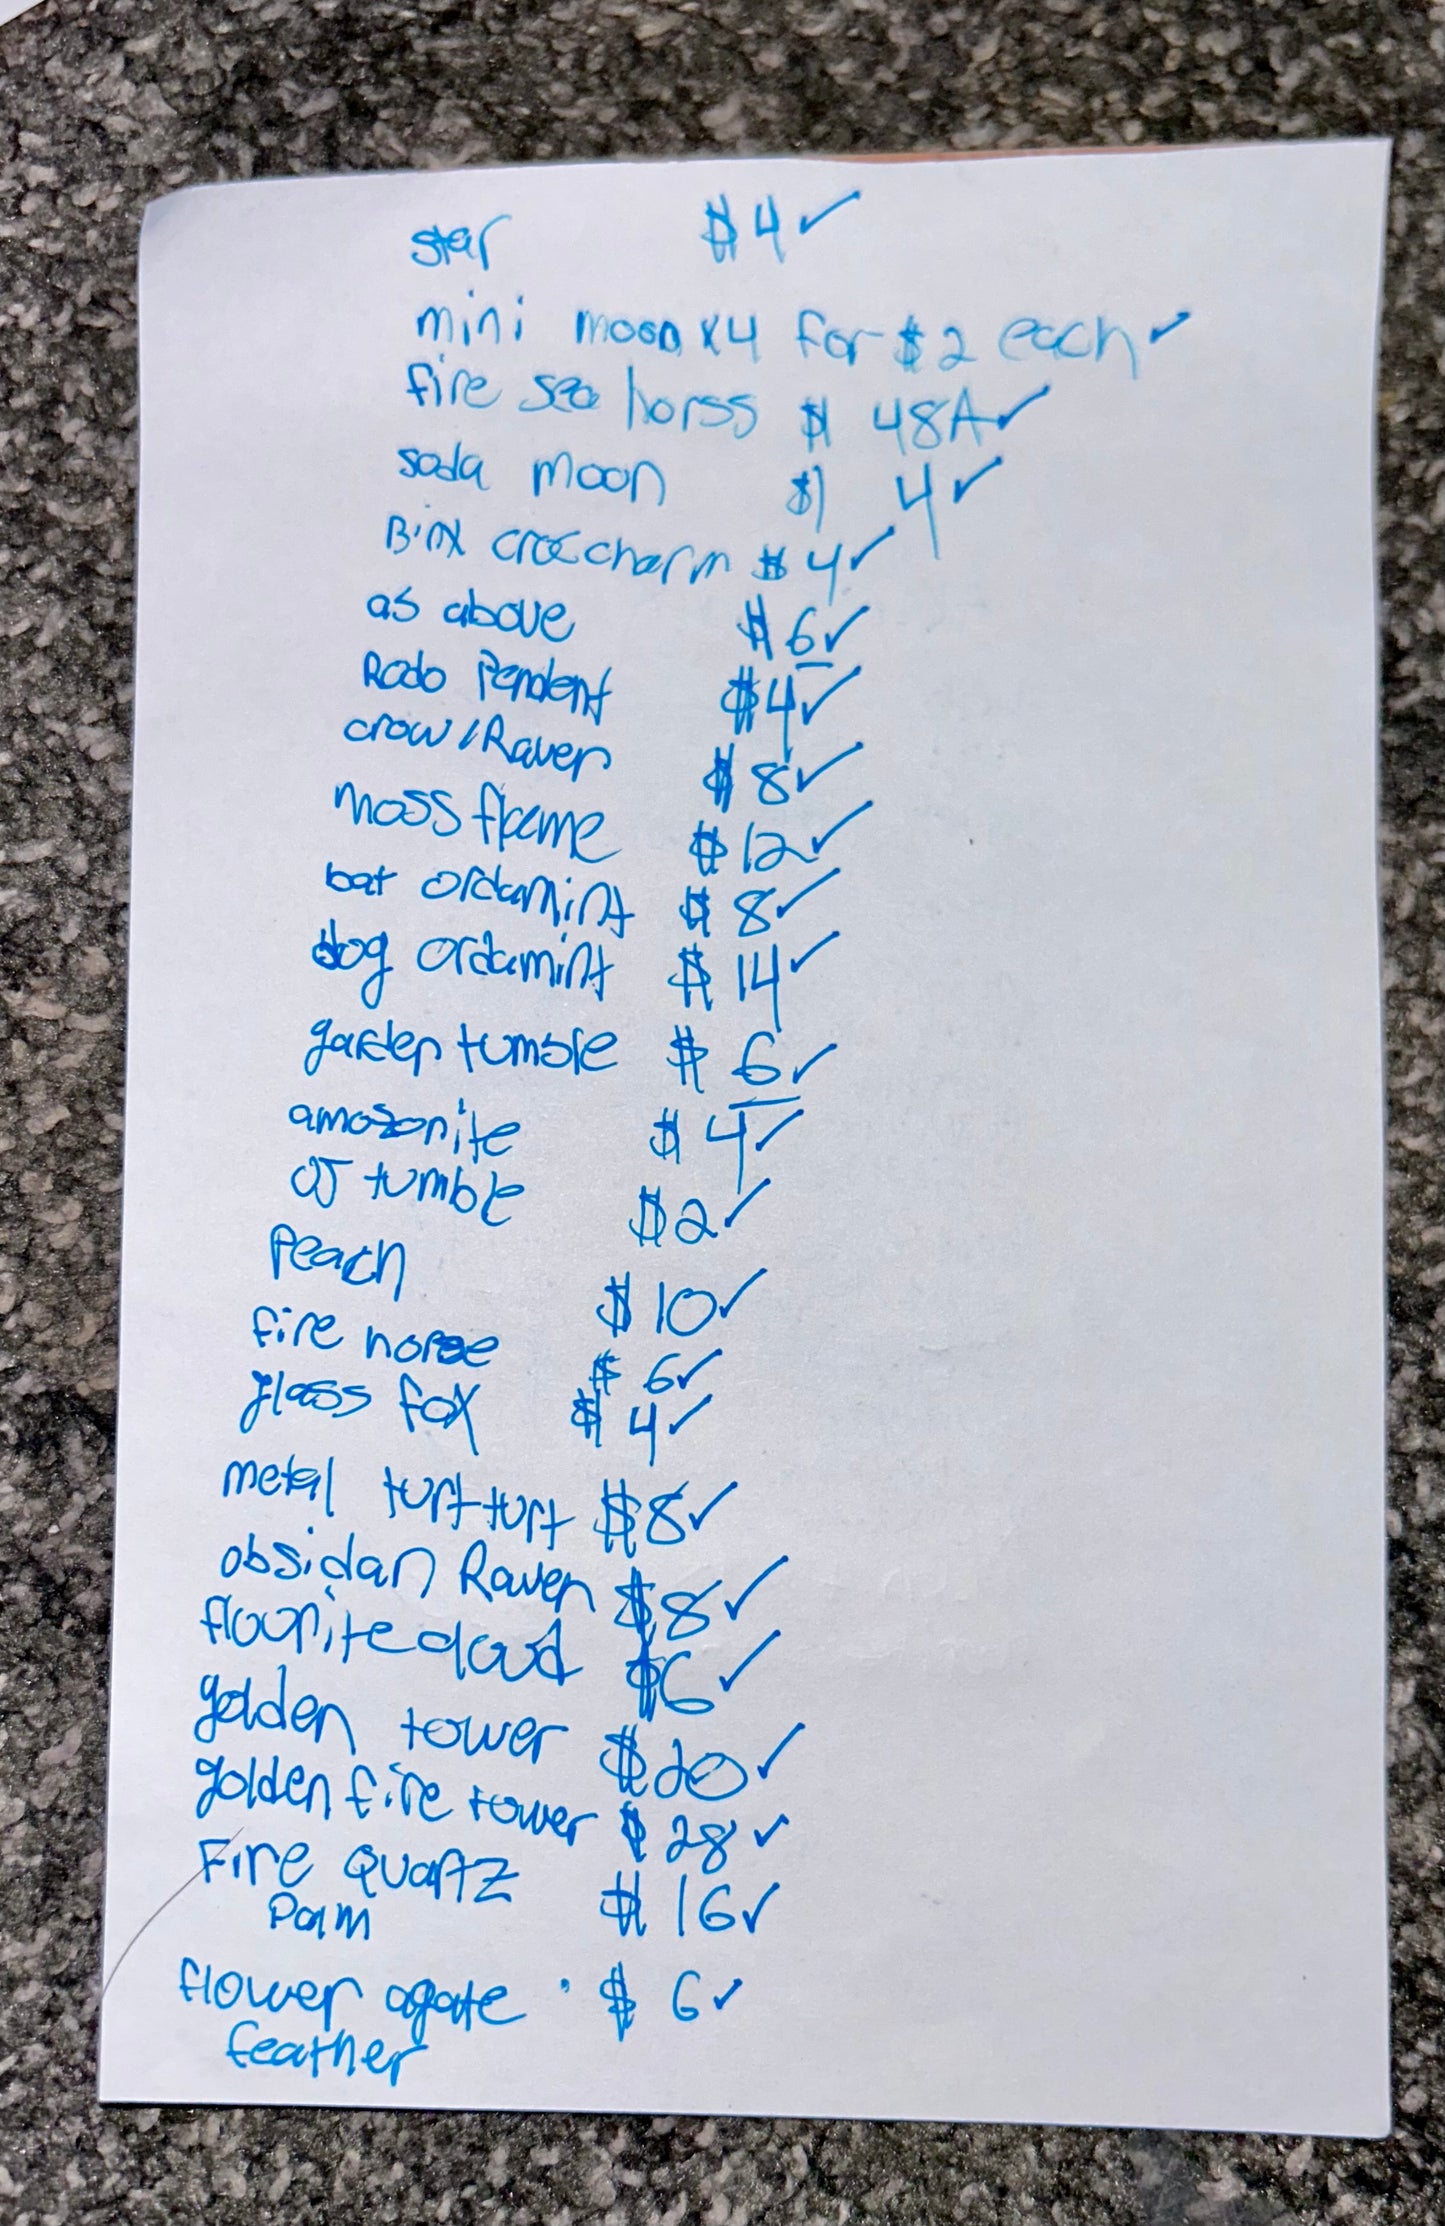 star $4 ✓
mini moon x4 for $2 each ✓
fire sea horss $ 48A ✓
soda moon $ 4 ✓
Binx croc charm $ 4 ✓
as above $ 6 ✓
Rodo Pendent $4 ✓
crow/Raven $ 8 ✓
moss flame $ 12 ✓
bat ordamint $ 8 ✓
dog ordamint $ 14 ✓
garden tumble $ 6 ✓
amozonite $ 4 ✓
OJ tumble $2 ✓
Peach $ 10 ✓
fire horse $ 6 ✓
glass fox $ 4 ✓
metal turt turt $8 ✓
obsidan Raven $8 ✓
flournite cloud $6 ✓
golden tower $20 ✓
golden fire tower $ 28 ✓
Fire Quartz $ 16 ✓
Pam
flower agate $ 6 ✓
feather